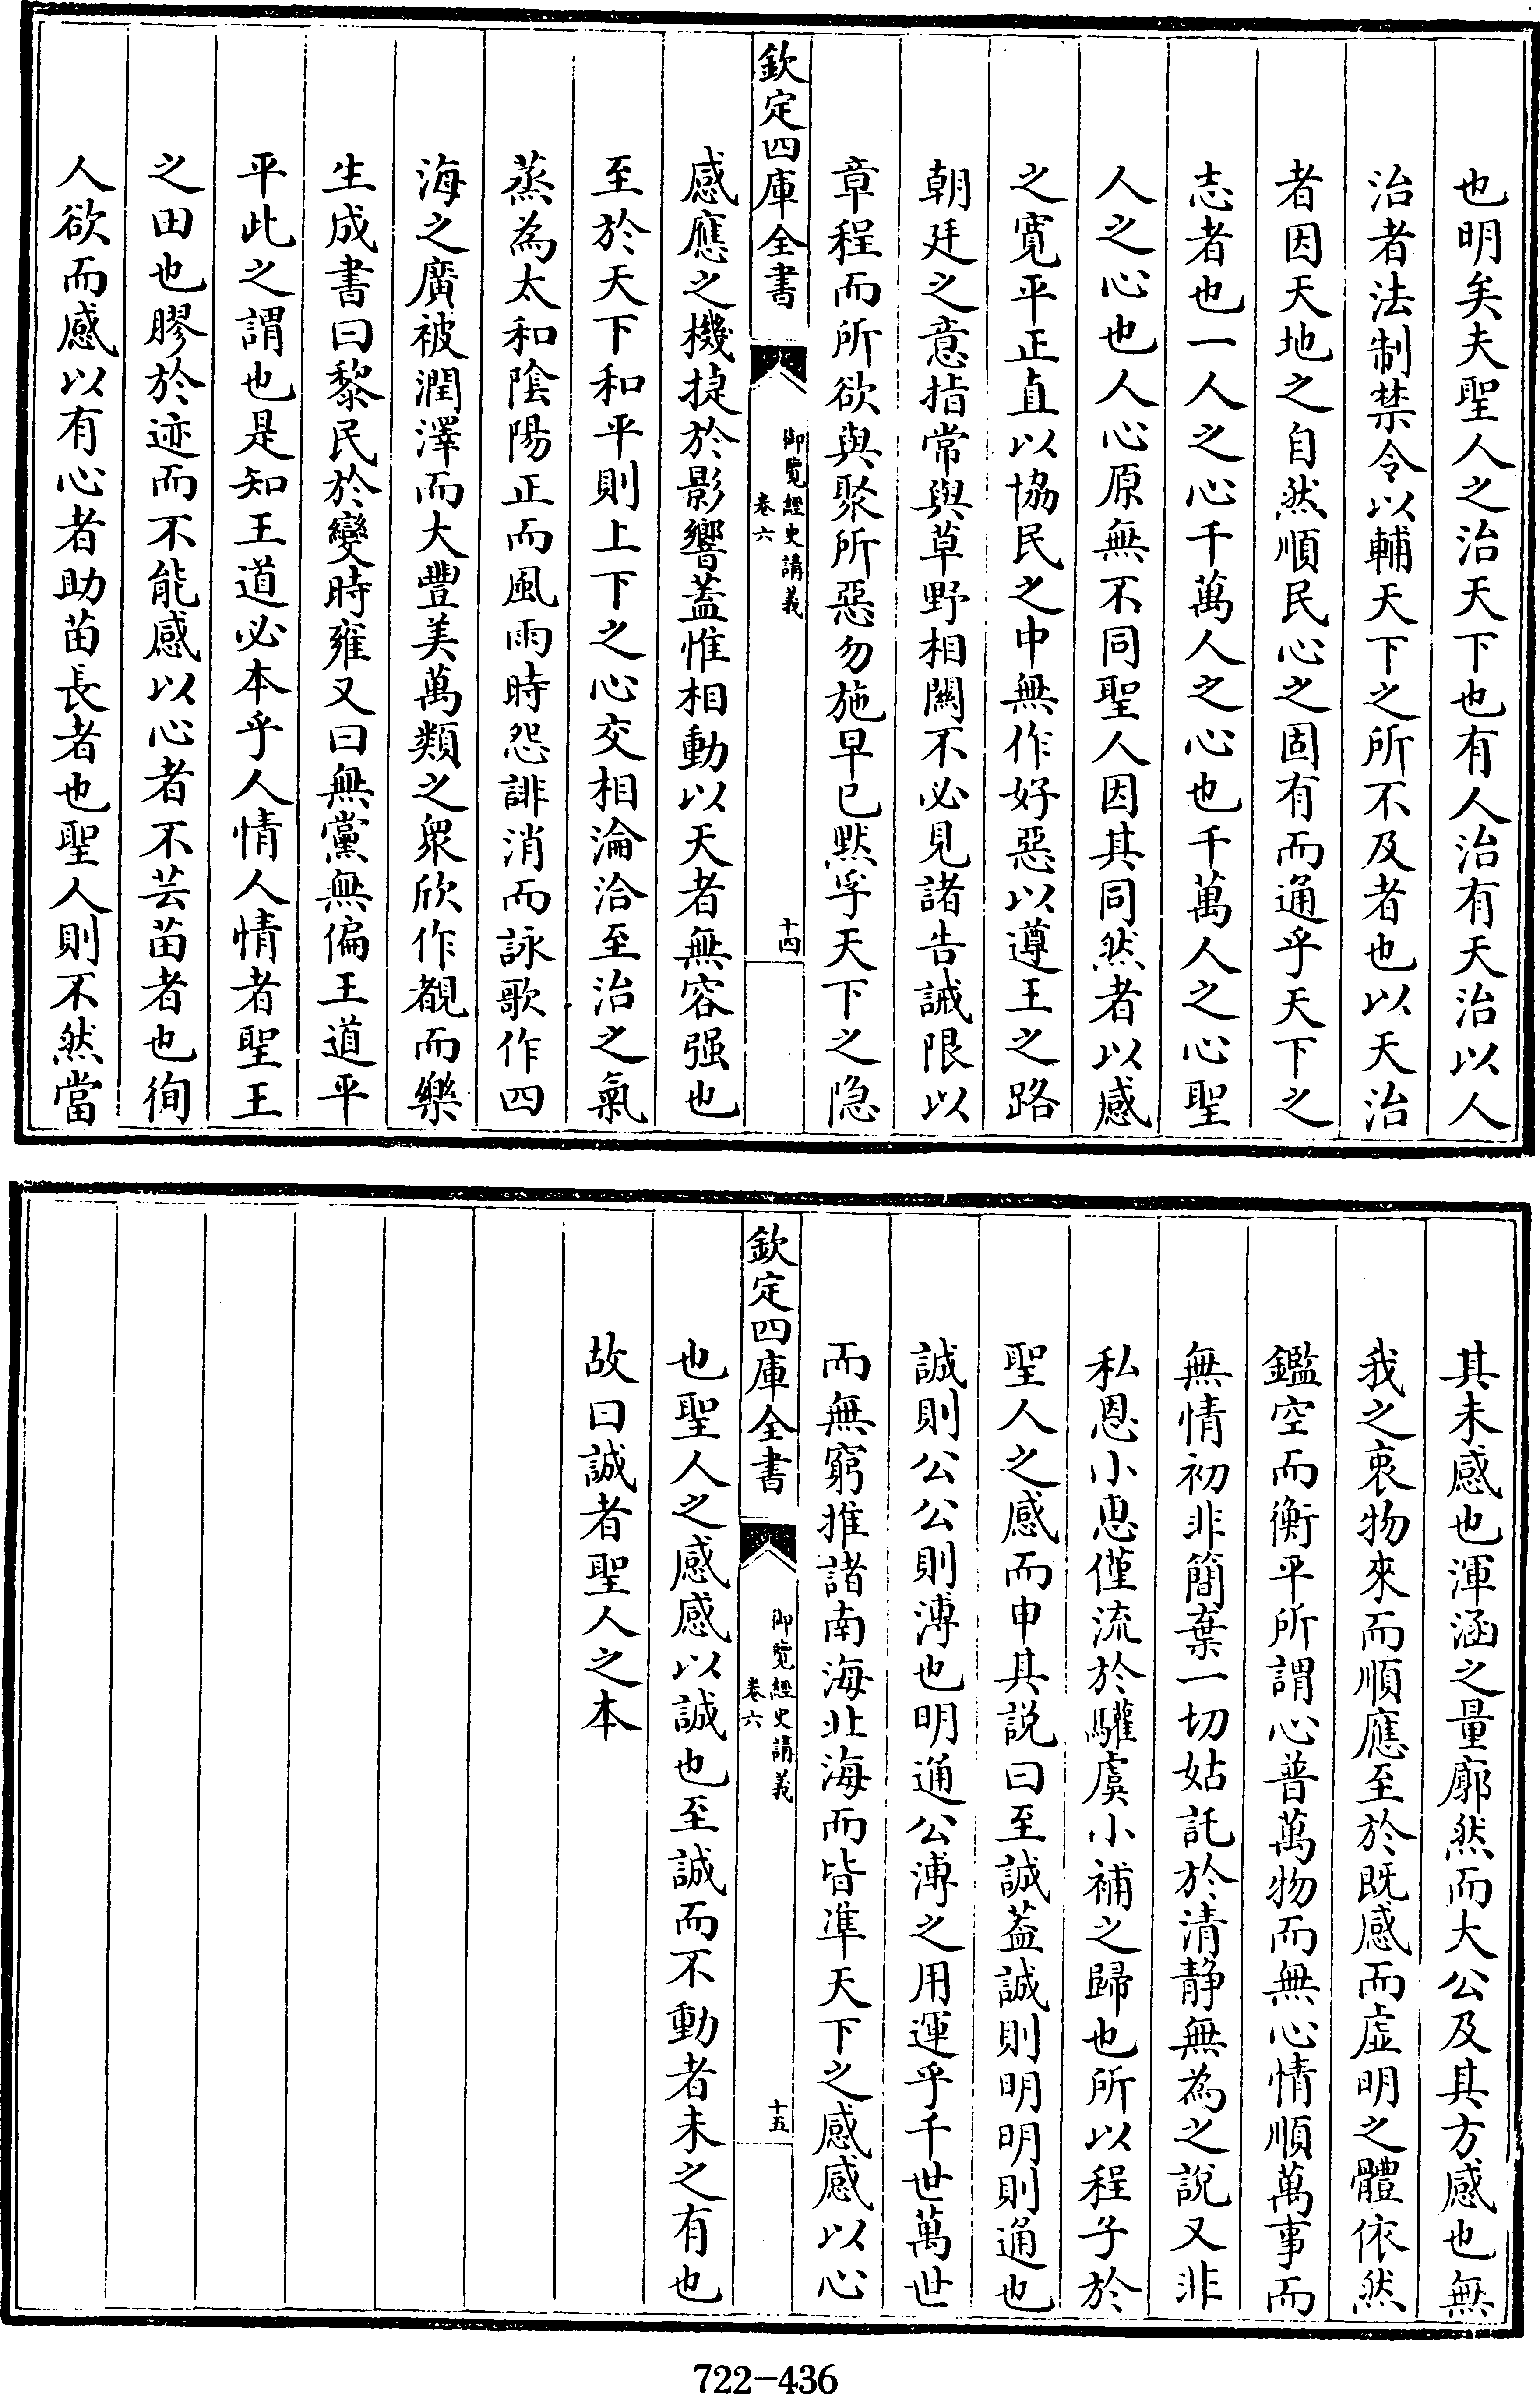 也明矣夫聖人之治天下也有人治有天治以人
治者法制禁令以輔天下之所不及者也以天治
者因天地之自然順民心之固有而通乎天下之
志者也一人之心千萬人之心也千萬人之心聖
人之心也人心原無不同聖人因其同然者以感
之寛平正直以協民之中無作好惡以遵王之路
朝廷之意指常與草野相關不必見諸告誡限以
章程而所欲與聚所惡勿施早已黙孚天下之隐
欽定四庫全書
御覽經史講義
卷六
十四
感應之機捷於影響蓋惟相動以天者無容强也
至於天下和平則上下之心交相淪洽至治之氣
蒸為太和隂陽正而風雨時怨誹消而詠歌作四
海之廣被潤澤而大豐美萬類之衆欣作覩而樂
生成書曰黎民於變時雍又曰無黨無偏王道平
平此之謂也是知王道必本乎人情人情者聖王
之田也膠於迹而不能感以心者不芸苗者也徇
人欲而感以有心者助苗長者也聖人則不然當
其未感也渾涵之量廓然而大公及其方感也無
我之衷物來而順應至於既感而虛明之體依然
鑑空而衡平所謂心普萬物而無心情順萬事而
無情初非簡棄一切姑託於清静無為之說又非
私恩小惠僅流於驩虞小補之歸也所以程子於
聖人之感而申其説曰至誠蓋誠則明明則通也
誠則公公則溥也明通公溥之用運乎千世萬世
而無窮推諸南海北海而皆準天下之感感以心
欽定四庫全書
御覽經史講義
卷六
十五
也聖人之感感以誠也至誠而不動者未之有也
故曰誠者聖人之本
722-436